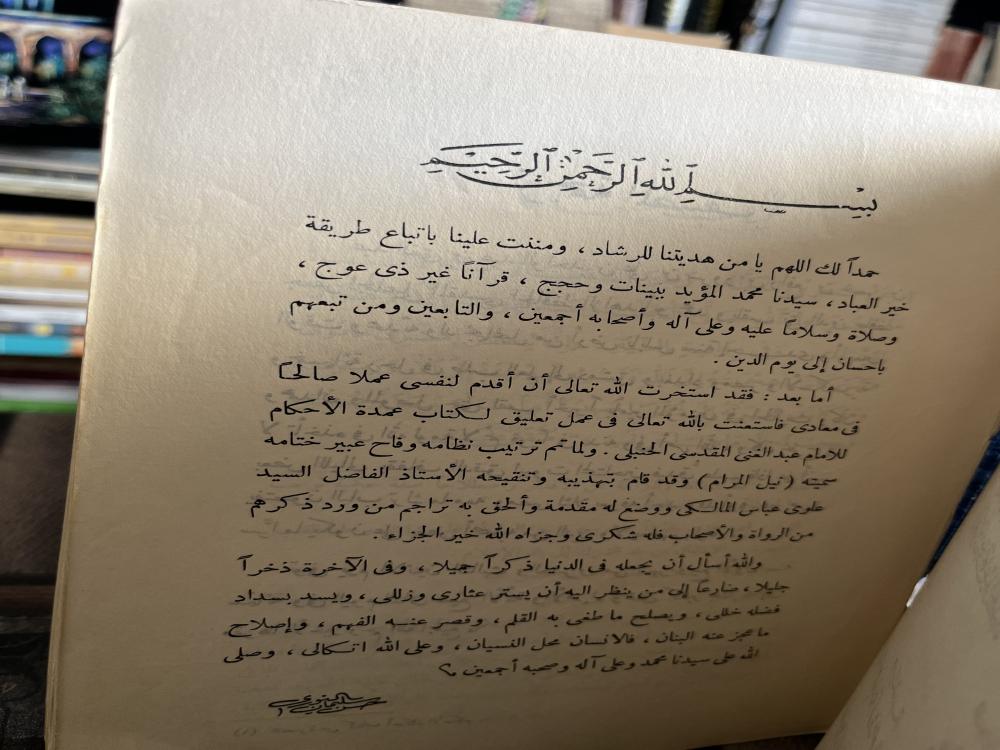 بِسْمِ ٱللَّهِ ٱلرَّحْمَٰنِ ٱلرَّحِيمِ
حمداً لك اللهم يا من هديتنا للرشاد ، ومننت علينا باتباع طريقة
خير العباد ، سيدنا محمد المؤيد ببينات وحجج ، قرآناً غير ذى عوج ،
وصلاة وسلاماً عليه وعلى آله وأصحابه أجمعين ، والتابعين ومن تبعهم
باحسان إلى يوم الدين .
أما بعد : فقد استخرت الله تعالى أن أقدم لنفسى عملا صالحاً
فى معادى فاستعنت بالله تعالى فى عمل تعليق لكتاب عمدة الأحكام
للامام عبد الغنى المقدسى الحنبلى . ولما تم ترتيب نظامه وفاح عبير ختامه
سميته ( نيل المرام ) وقد قام بتهذيبه وتنقيحه الأستاذ الفاضل السيد
علوى عباس المالكى ووضع له مقدمة وألحق به تراجم من ورد ذكرهم
من الرواة والأصحاب فله شكرى وجزاه الله خير الجزاء .
والله أسأل أن يجعله فى الدنيا ذكراً جميلا ، وفى الآخرة ذخراً
جليلا ، ضارعاً إلى من ينظر اليه أن يستر عثارى وزللى ، ويسد بسداد
فضله خللى ، ويصلح ما طغى به القلم ، وقصر عنه الفهم ، وإصلاح
ما عجز عنه البنان ، فالانسان محل النسيان ، وعلى الله اتكالى ، وصلى
الله على سيدنا محمد وعلى آله وصحبه أجمعين ؟
حسن سليمان النورى